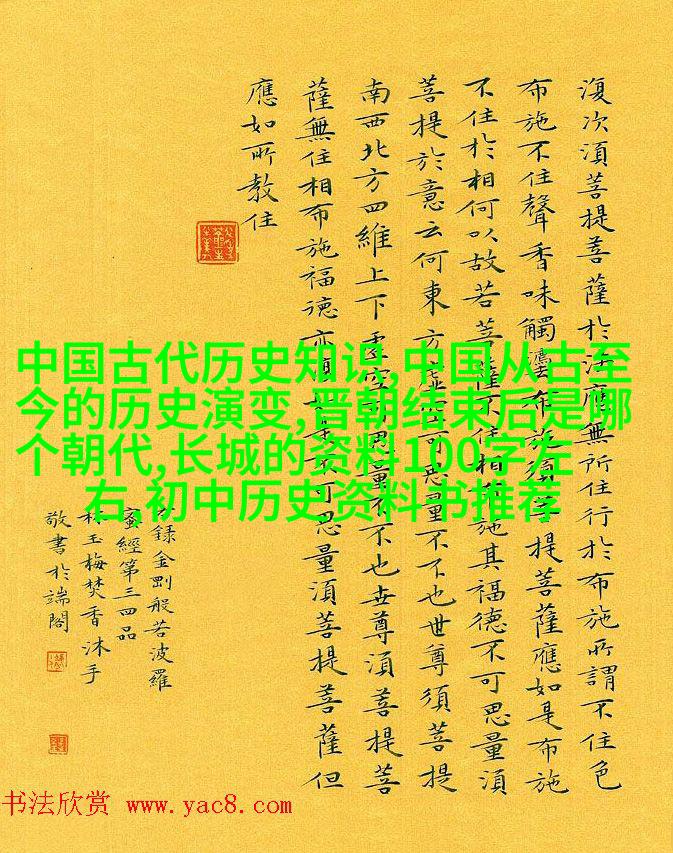 復次須菩提菩薩於法應無所住行於布施所謂不住色
布施不住聲香味觸灋布施須菩提菩薩應如是布施
不住於相何以故若菩薩不住相布施其福德不可思量須
菩提於意云何東方虛空可思量不不也世尊須菩提
南西北方四維上下虛空可思量不不也世尊須菩提菩
薩無住相布施福德亦復如是不可思量須菩提菩薩但
應如所教住
錄金剛般若波羅
蜜經第三四品
林玉梅焚香沐手
敬書於端閣
中国古代历史知识,中国从古至
今的历史演变,晋朝结束后是哪
个朝代,长城的资料100字左
右,初中历史资料书推荐
书法欣赏 www.yac8.com